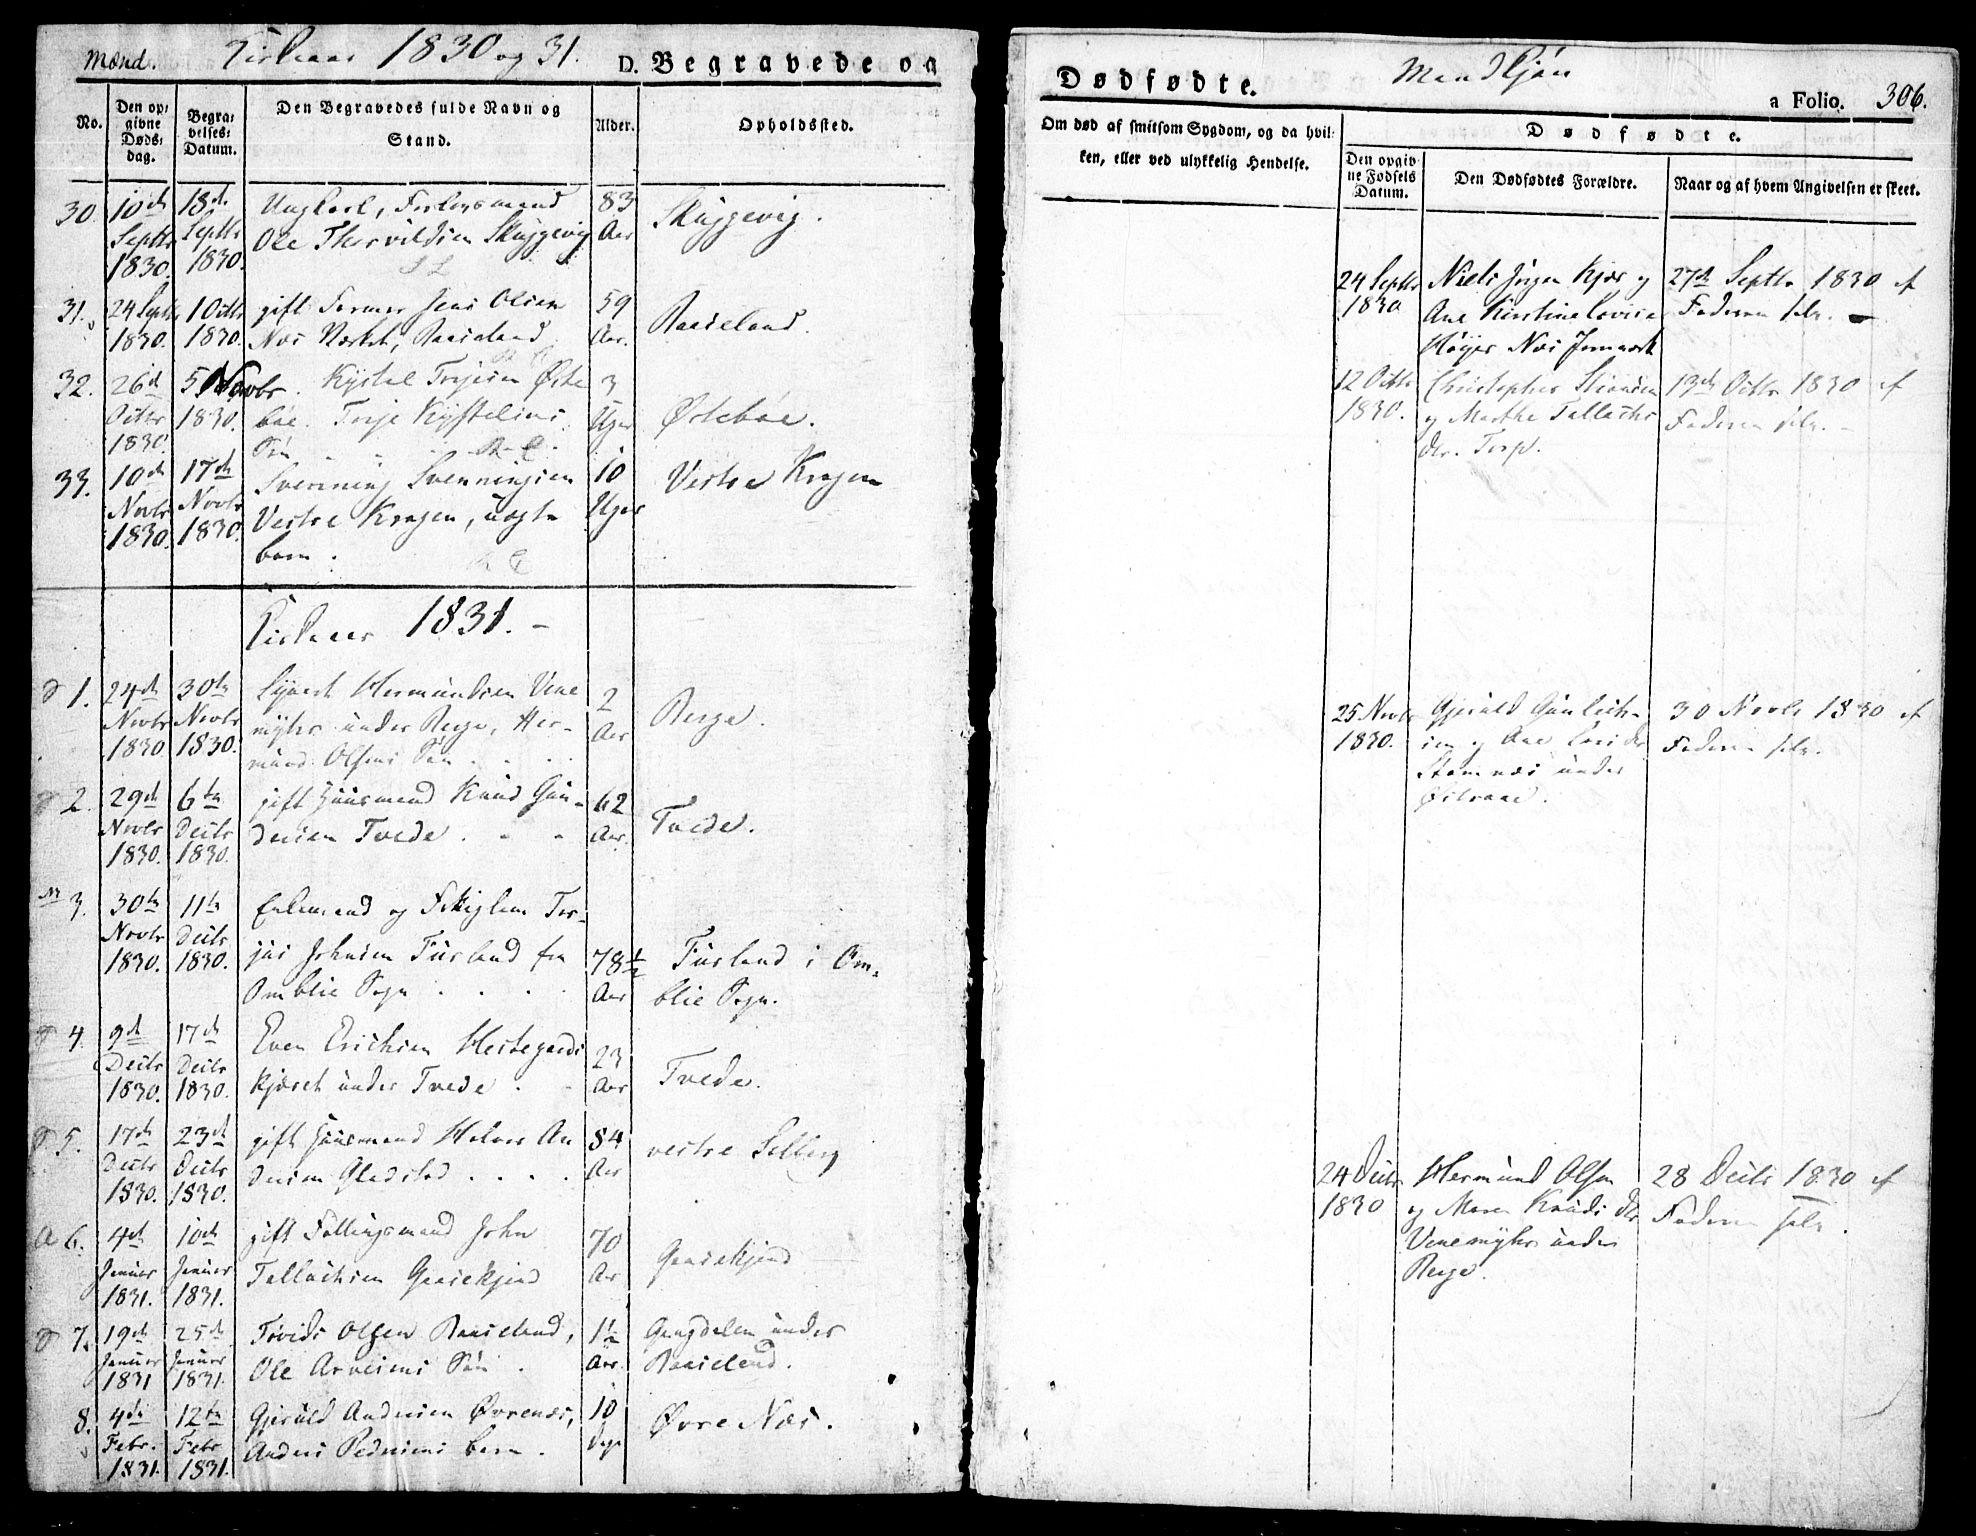 Mænd. Kirkeaar 1830 og 31. D. Begravede og
No.
Den op-
givne
Døds-
dag.
Begra-
velses-
Datum.
Den Begravedes fulde Navn og
Stand.
Alder.
Opholdssted.
30. 10de Septbr 1830. 18de Septbr 1830.
Ungkarl,
Ole Thorvildsen Skuggevig
83 Aar
Skuggevig.
31. 24 Septbr 1830. 1 Octbr 1830.
gift Former Jens Olsen
Næs Værket, Raaseland
59 Aar.
Raaseland.
32. 26de Octbr 1830. 5 Novbr. 1830.
Kystel Terjesen Øste
bøe. Terje Kystelsens
Søn
3 Uger
Østebøe.
33. 10de Novbr 1830. 17de Novbr 1830.
Svenning Svenningsen
Vestre Kragen, uægte
barn.
10 Uger
Vestre Kragen
Kirkeaar 1831.
1. 24de Novbr 1830. 30te Novbr 1830.
Sywert Hermundsen Vene
myhr under Berge, Her-
mund Olsens Søn
2 Aar
Berge.
2. 29de Novbr 1830. 6te Decbr 1830.
gift Huusmand Knud Gun-
dersen Tvede.
62 Aar.
Tvede.
3. 30te Novbr 1830. 11te Decbr 1830.
Enkemand og
Johnsen Fuurland fra
Omblie Sogn
78½ Aar
Fuurland i Om-
blie Sogn.
4. 9de Decbr 1830. 17de Decbr 1830.
Even Erichsen Hestegards
kjæret under Tvede.
23 Aar
Tvede.
5. 17de Decbr 1830. 23de Decbr 1830.
gift Huusmand Halvor An
dersen Gladstad
84 Aar
vestre Solberg
6. 4de Januar 1831. 10de Januar 1831.
gift Follingsmand John
Tallachsen Gaasekjend
70 Aar
Gaasekjend
7. 19de Januar 1831 25de Januar 1831.
Tovids Olsen Raaseland,
Ole Arvesens Søn.
1½ Aar.
Gangdalen under
Raaseland.
8. 4de Febr. 1831. 12te Febr 1831.
Gjeruld Andersen Øvrenæs,
Anders Pedersens barn.
10 Dage
Øvre Næs.
Dødfødte. Mandkjøn a Folio. 306.
Om død af smitsom Sygdom, og da hvil-
ken, eller ved ulykkelig Hendelse.
Dødfødte.
Den opgiv-
ne Fødsels
Datum.
Den Dødfødtes Forældre.
Naar og af hvem Angivelsen er skeet.
24 Septbr 1830
Niels Jørgen Kjær og
Ane Kirstine Lovise
Høyer Næs Jernværk
27de Septbr 1830 af
Faderen selv.
12 Octbr 1830.
Christopher
og Marthe Tallachs
dtr. Torp.
13de Octbr 1830 af
Faderen selv.
25 Novbr 1830.
Gjeruld Gunleik-
sen og Ane
Stamnæs under
30 Novbr 1830 af
Faderen selv.
24 Decbr 1830
Hermund Olsen
og Maren Knuds dtr
Venemyhr under
Berge.
28 Decbr 1830 af
Faderen selv.